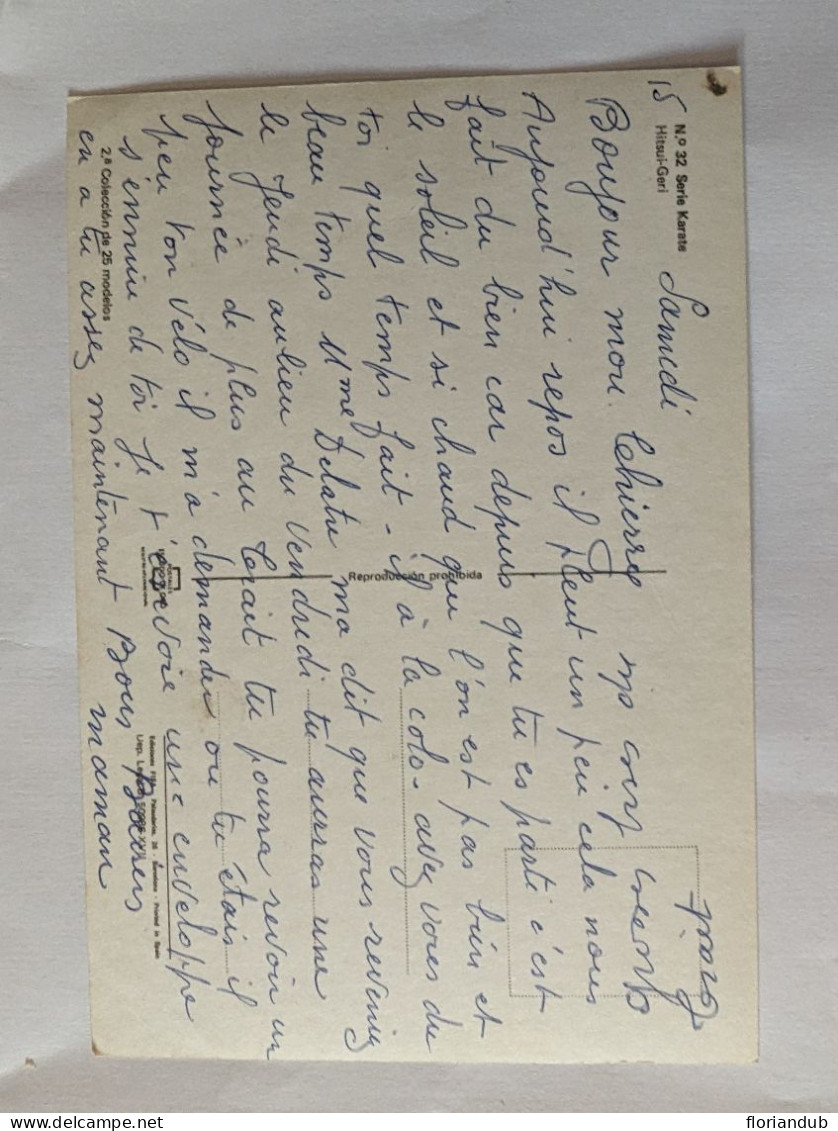 15
N.º 32 Serie Karate
Hitsui-Geri
Samedi
Bonjour mon Thierry
Aujourd'hui repos il pleut un peu cela nous
fait du bien car depuis que tu es parti c'est
le soleil et si chaud que l'on est pas bien et
toi quel temps fait-il à la colo. avez vous du
beau temps Mme Delatre ma dit que vous reveniez
le Jeudi au lieu du Vendredi tu auras une
journée de plus au Crait tu pourra revoir un
peu ton vélo il m'a demander ou tu étais il
s'ennuie de toi Je t'envoie une enveloppe
en a tu assez maintenant Bons Baisers
maman
Reproducción prohibida
2.ª Colección de 25 modelos
Printed in Spain
floriandub